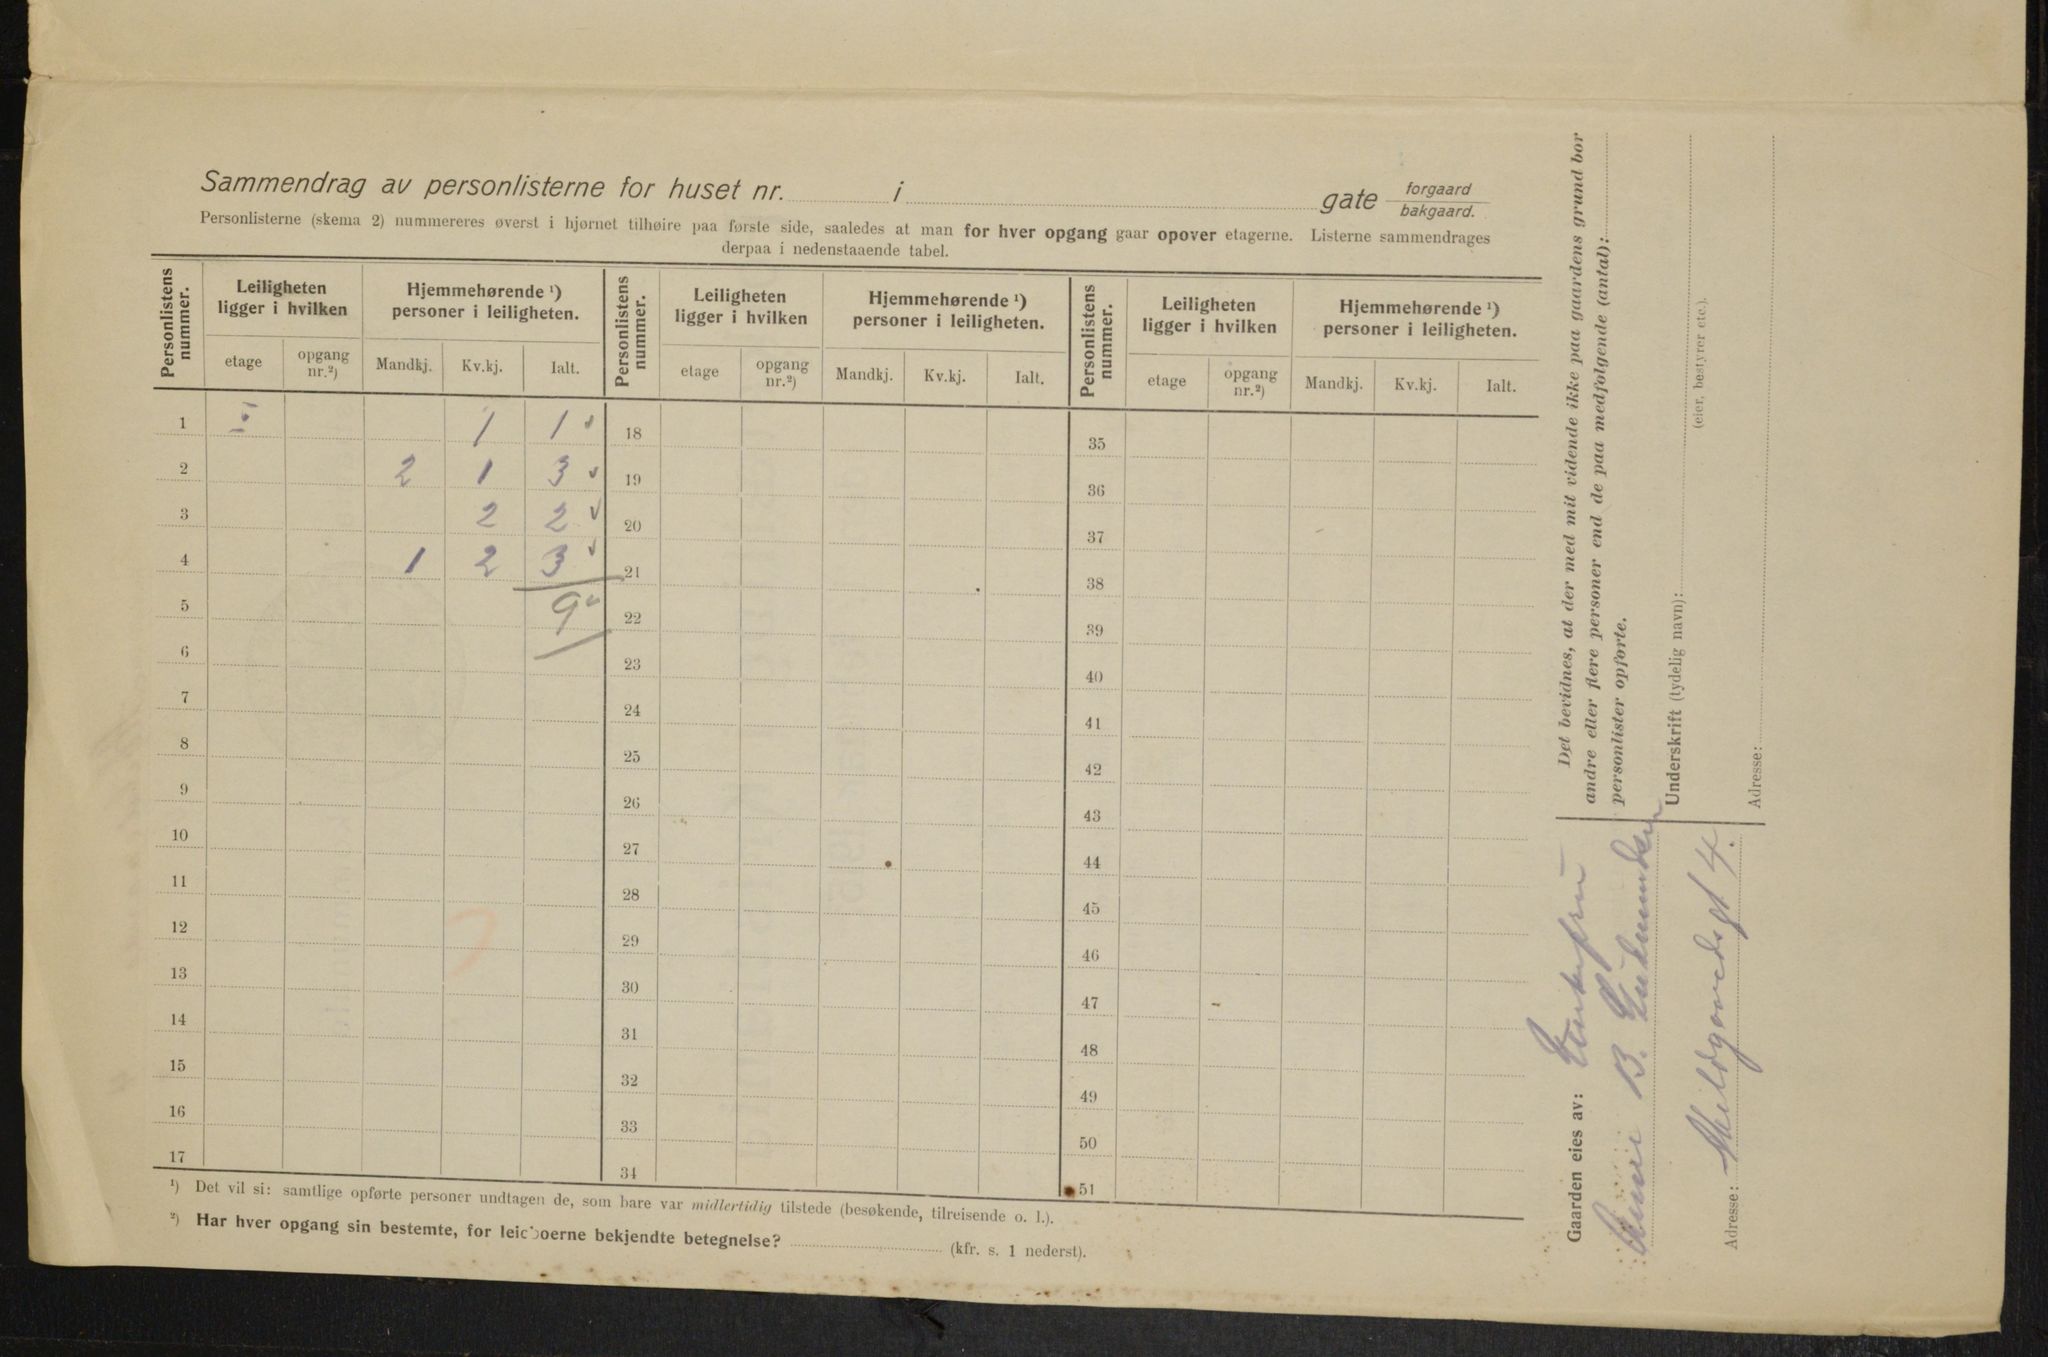 Sammendrag av personlisterne for huset nr. i gate forgaard
bakgaard.
Personlisterne (skema 2) nummereres øverst i hjørnet tilhøire paa første side, saaledes at man for hver opgang gaar opover etagerne. Listerne sammendrages
derpaa i nedenstaaende tabel.
Personlistens nummer. Leiligheten ligger i hvilken Hjemmehørende ¹) personer i leiligheten. Personlistens nummer. Leiligheten ligger i hvilken Hjemmehørende ¹) personer i leiligheten. Personlistens nummer. Leiligheten ligger i hvilken Hjemmehørende ¹) personer i leiligheten.
etage opgang nr.²) Mandkj. Kv.kj. Ialt. etage opgang nr.²) Mandkj. Kv.kj. Ialt. etage opgang nr.²) Mandkj. Kv.kj. Ialt.
1 I 1 1 18 35
2 2 1 3 19 36
3 2 2 20 37
4 1 2 3 21 38
5 9 22 39
6 23 40
7 24 41
8 25 42
9 26 43
10 27 44
11 28 45
12 29 46
13 30 47
14 31 48
15 32 49
16 33 50
17 34 51
¹) Det vil si: samtlige opførte personer undtagen de, som bare var midlertidig tilstede (besøkende, tilreisende o. l.).
²) Har hver opgang sin bestemte, for leieboerne bekjendte betegnelse? (kfr. s. 1 nederst).
Det bevidnes, at der med mit vidende ikke paa gaardens grund bor
andre eller flere personer end de paa medfølgende (antal):
personlister opførte.
Underskrift (tydelig navn):
(eier, bestyrer etc.).
Adresse:
Gaarden eies av: Enkefru
B. Gudmundsen
Adresse: Schildgaardsgt 4.